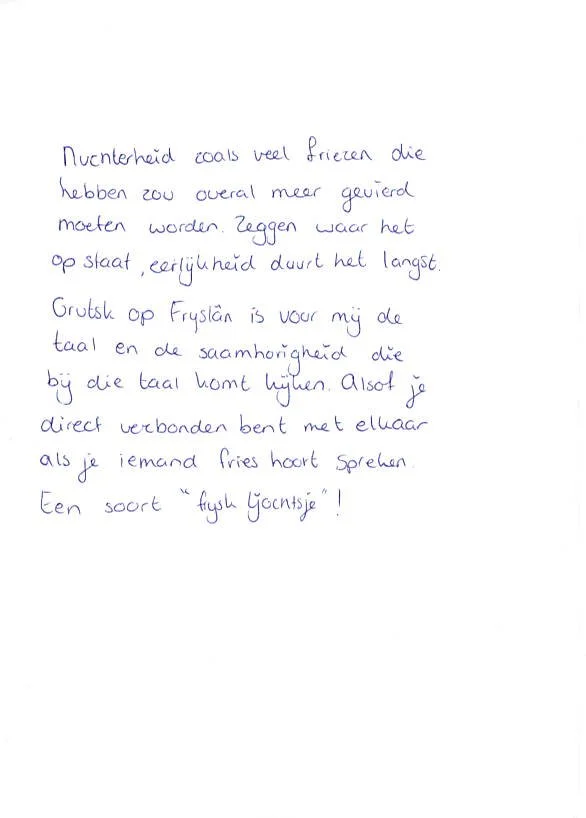 Nuchterheid zoals veel friezen die
hebben zou overal meer gevierd
moeten worden. Zeggen waar het
op staat, eerlijkheid duurt het langst.
Grutsk op Fryslân is voor mij de
taal en de saamhorigheid die
bij die taal komt kijken. Alsof je
direct verbonden bent met elkaar
als je iemand fries hoort spreken.
Een soort "frysk ljochtsje"!